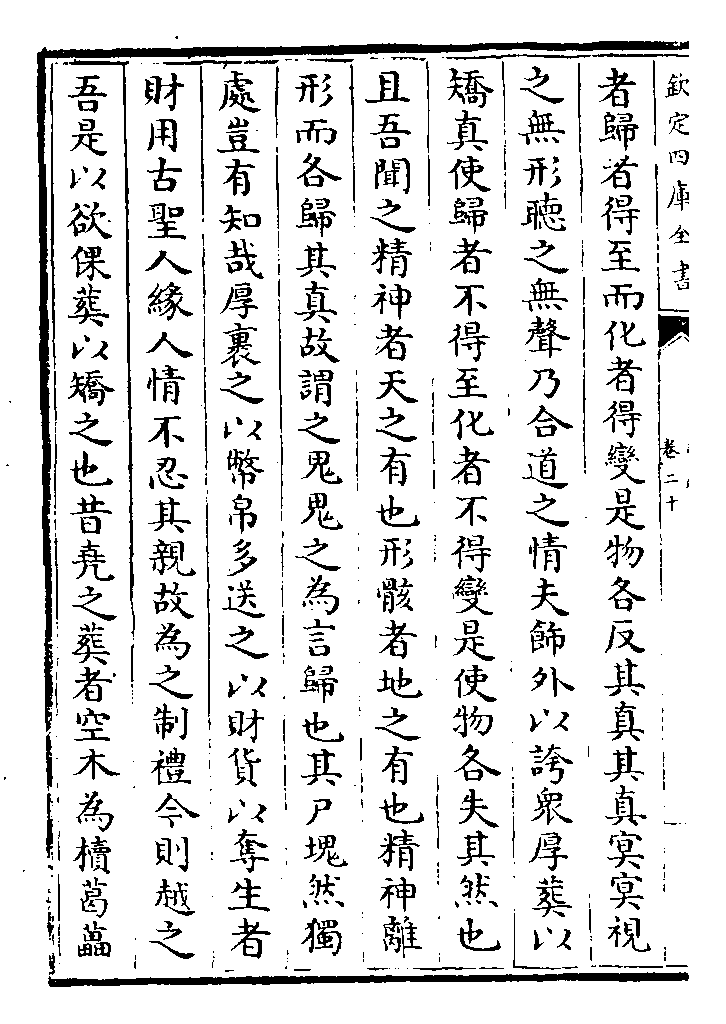 欽定四庫全書
卷二十
者歸者得至而化者得變是物各反其真其真冥冥視
之無形聽之無聲乃合道之情夫飾外以誇衆厚葬以
矯真使歸者不得至化者不得變是使物各失其然也
且吾聞之精神者天之有也形骸者地之有也精神離
形而各歸其真故謂之鬼鬼之為言歸也其尸塊然獨
處豈有知哉厚裹之以幣帛多送之以財貨以奪生者
財用古聖人緣人情不忍其親故為之制禮今則越之
吾是以欲倮葬以矯之也昔堯之葬者空木為櫝葛藟